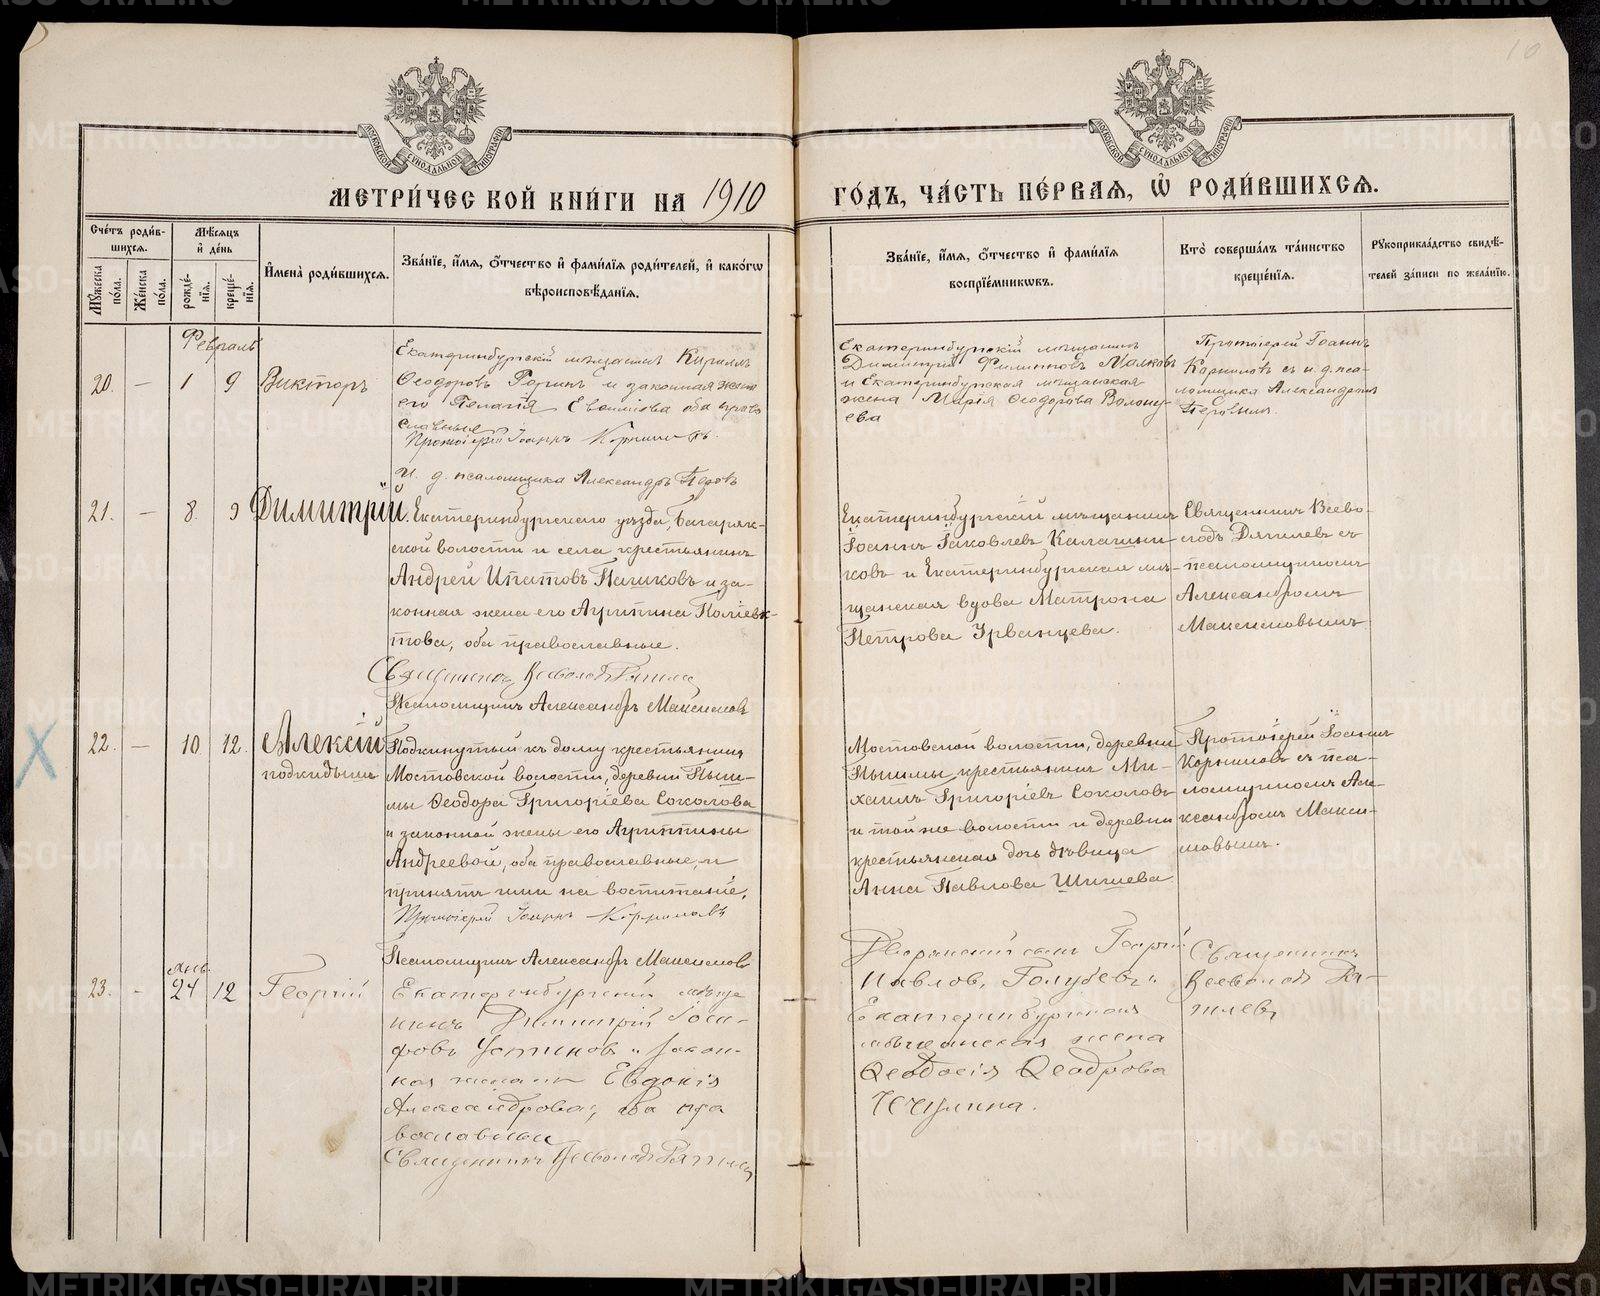 10
МОСКОВСКОЙ СУНОДАЛЬНОЙ ТИПОГРАФІИ
МОСКОВСКОЙ СУНОДАЛЬНОЙ ТИПОГРАФІИ
МЕТРИ́ЧЕСКОЙ КНИ́ГИ НА 1910 ГО́ДЪ, ЧА́СТЬ ПЕ́РВАѦ, Ѡ҆ РОДИ́ВШИХСѦ.
Сче́тъ роди́в-
шихсѧ.
Мꙋ́жеска по́ла.
Же́нска по́ла.
Мѣ́сѧцъ
и҆ де́нь
рожде́-
нїѧ.
креще́-
нїѧ.
И҆мена̀ роди́вшихсѧ.
Зва́нїе, и҆́мѧ, ѻ҆́тчество и҆ фами́лїѧ роди́телей, и҆ како́гѡ
вѣроисповѣ́данїѧ.
Зва́нїе, и҆́мѧ, ѻ҆́тчество и҆ фами́лїѧ
воспрїе́мникѡвъ.
Кто̀ соверша́лъ та́инство
креще́нїѧ.
Рꙋкоприкла́дство свидѣ́-
телей за́писи по жела́нїю.
Февраль
20. — 1 9 Викторъ
Екатеринбургскій мѣщанинъ Кириллъ
Ѳеодоровъ и законная жена
его Пелагія Евѳиміева оба право
славные
Протоіерей Іоаннъ Корниловъ.
И. д. псаломщика Александръ Перовъ
Екатеринбургскій мѣщанинъ
Димитрій Филипповъ Малковъ
и Екатеринбургская мѣщанская
жена Марія Ѳеодорова
Протоіерей Іоаннъ
Корниловъ съ и. д. пса-
ломщика Александромъ
Перовымъ.
21. — 8. 9 Димитрій.
Екатеринбургскаго уѣзда, Багаряк-
ской волости и села крестьянинъ
Андрей Ипатовъ Пашковъ и за-
конная жена его Агрипина Поліевк-
това, оба православные.
Священникъ Всеволодъ Ряпилев
Псаломщикъ Александръ Максимовъ
Екатеринбургскій мѣщанинъ
Іоаннъ Іаковлевъ Калашни-
ковъ и Екатеринбургская мѣ-
щанская вдова Матрона
Петрова Урванцева.
Священникъ Всево-
лодъ Ряпилевъ съ
псаломщикомъ
Александромъ
Максимовымъ.
22. — 10 12. Алексій
подкидышъ
Подкинутый къ дому крестьянина
Мостовской волости, деревни Пыш-
мы Ѳеодора Григоріева Соколова
и законной жены его Агриппины
Андреевой, оба православные, и
принятъ ими на воспитаніе.
Протоіерей Іоаннъ Корниловъ
Псаломщикъ Александръ Максимовъ
Мостовской волости, деревни
Пышмы крестьянинъ Ми-
хаилъ Григоріевъ Соколовъ
и той же волости и деревни
крестьянская дочь дѣвица
Анна Павлова Шишева
Протоіерей Іоаннъ
Корниловъ съ пса-
ломщикомъ Але-
ксандромъ Макси-
мовымъ.
янв.
23. — 24 12 Георгій
Екатеринбургскій мѣща
нинъ Димитрій Іоси-
фовъ Устиновъ и закон-
ная жена его Евдокія
Александрова, оба пра
вославные
Священникъ Всеволодъ Ряпилев
Дворянскій сынъ Георгій
Павловъ Голубевъ и
Екатеринбургская
мѣщанская жена
Ѳеодосія Ѳеодорова
Священникъ
Всеволодъ Ря-
пилевъ
METRIKI.GASO-URAL.RU